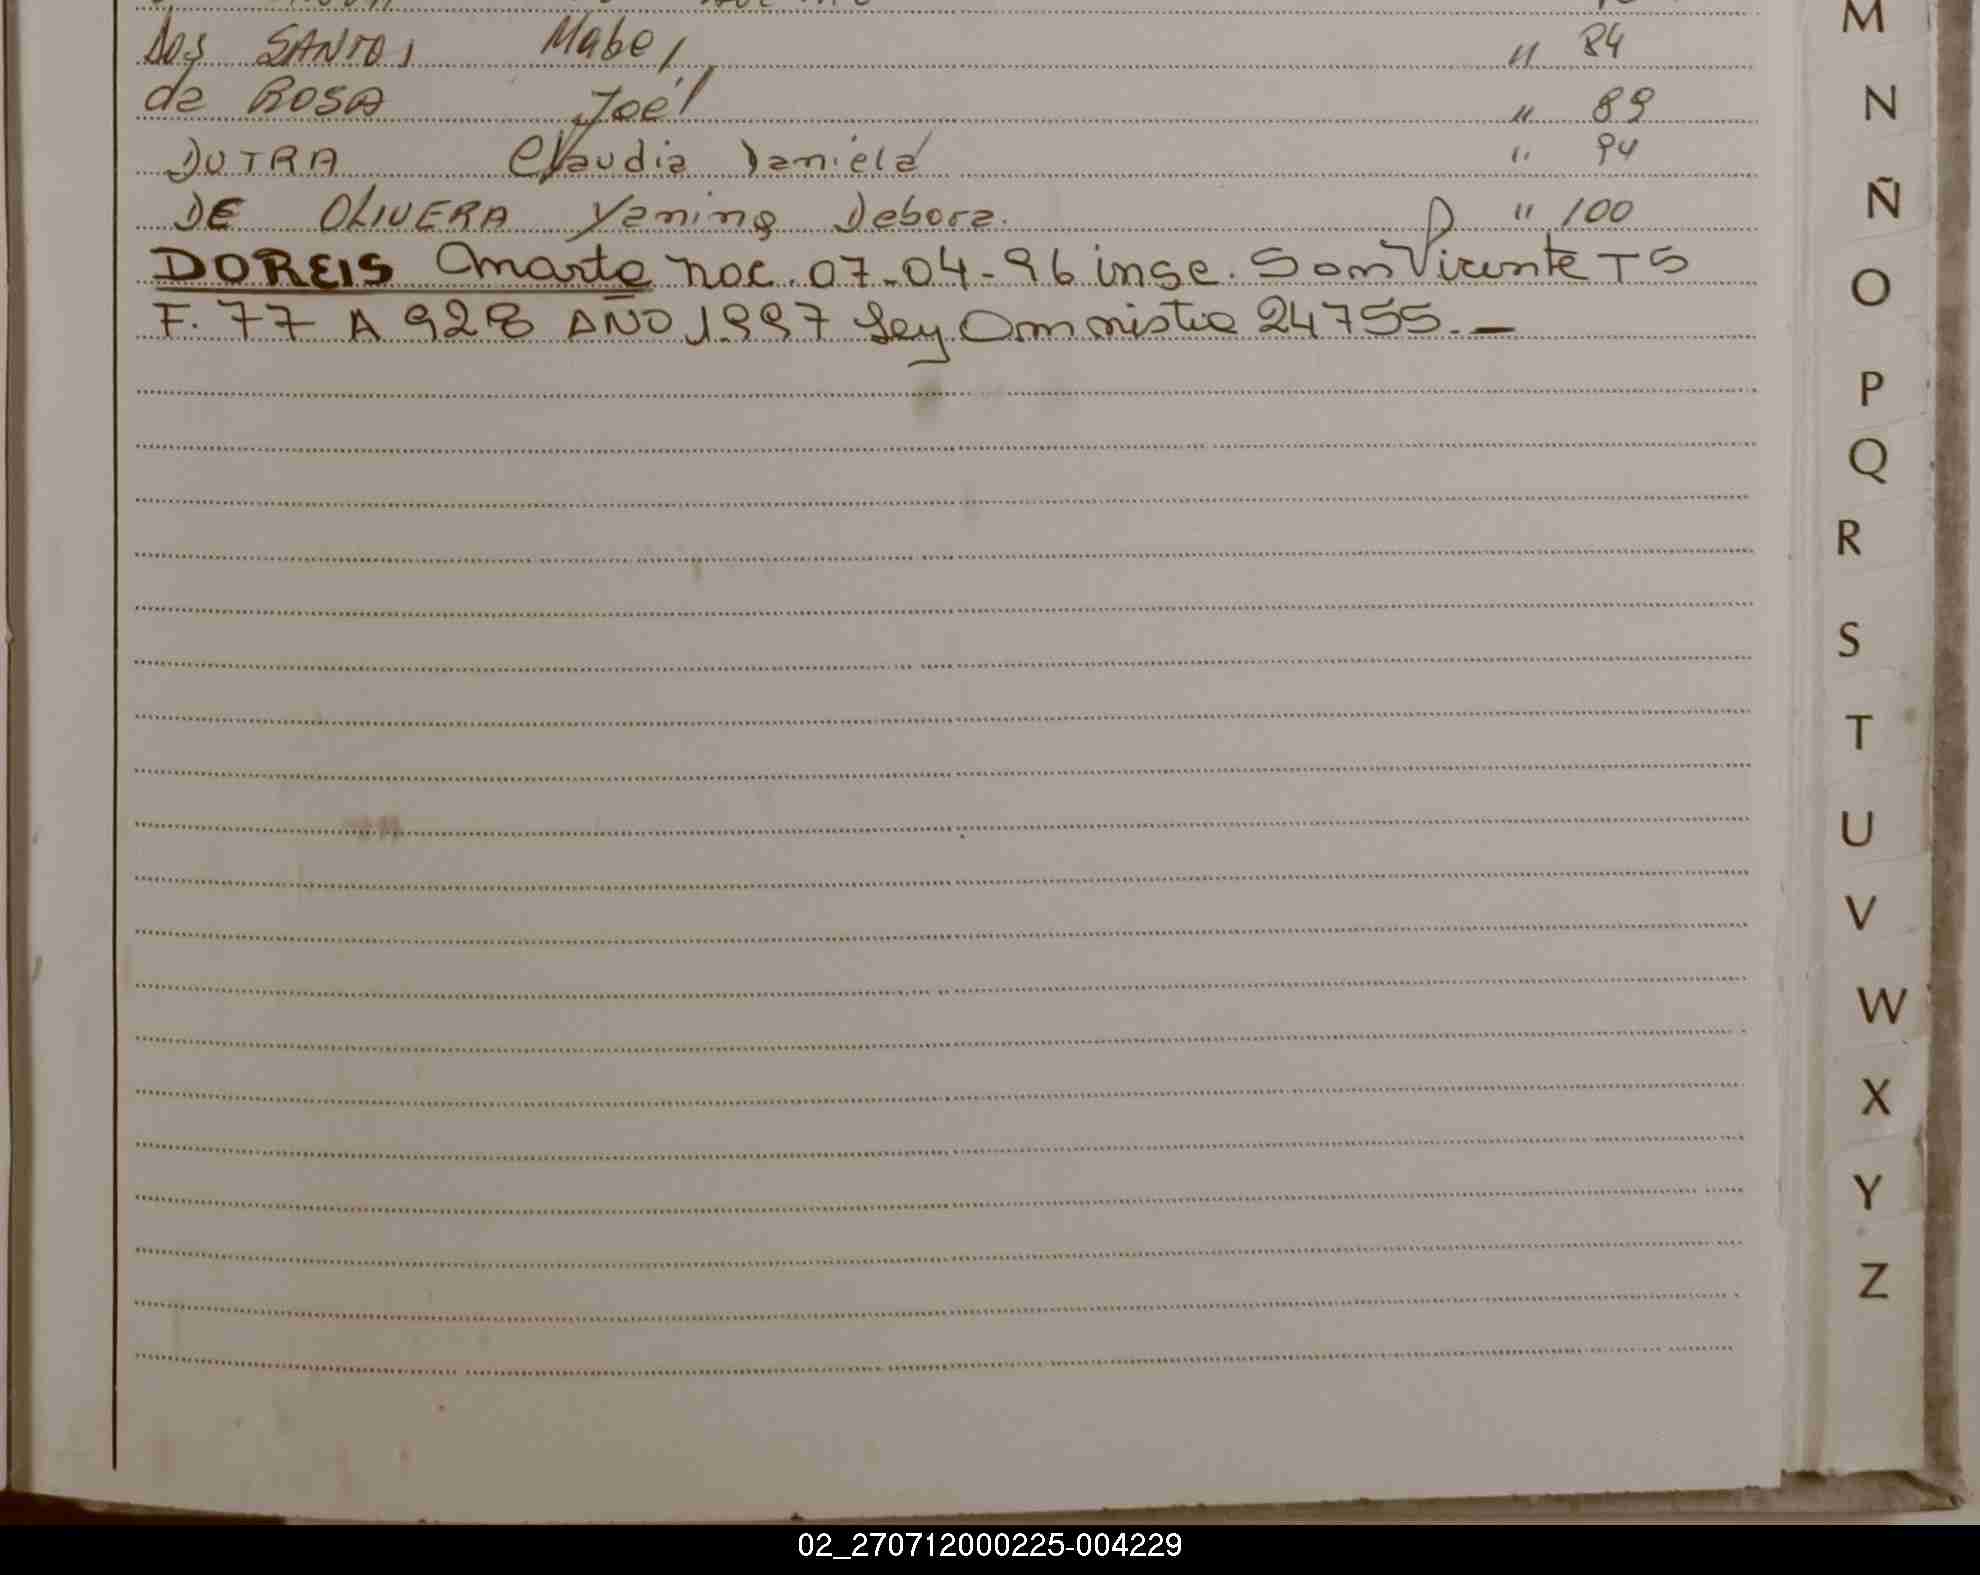 Dos SANTOS Mabel " 84
da ROSA Joel " 89
DUTRA Claudia Daniela " 94
DE OLIVERA Yanina Debora. " 100
DOREIS Amarta nac. 07-04-96 insc. San Vicente TS
F. 77 A 928 AÑO 1997 Ley Amnistia 24755.-
M
N
Ñ
O
P
Q
R
S
T
U
V
W
X
Y
Z
02_270712000225-004229